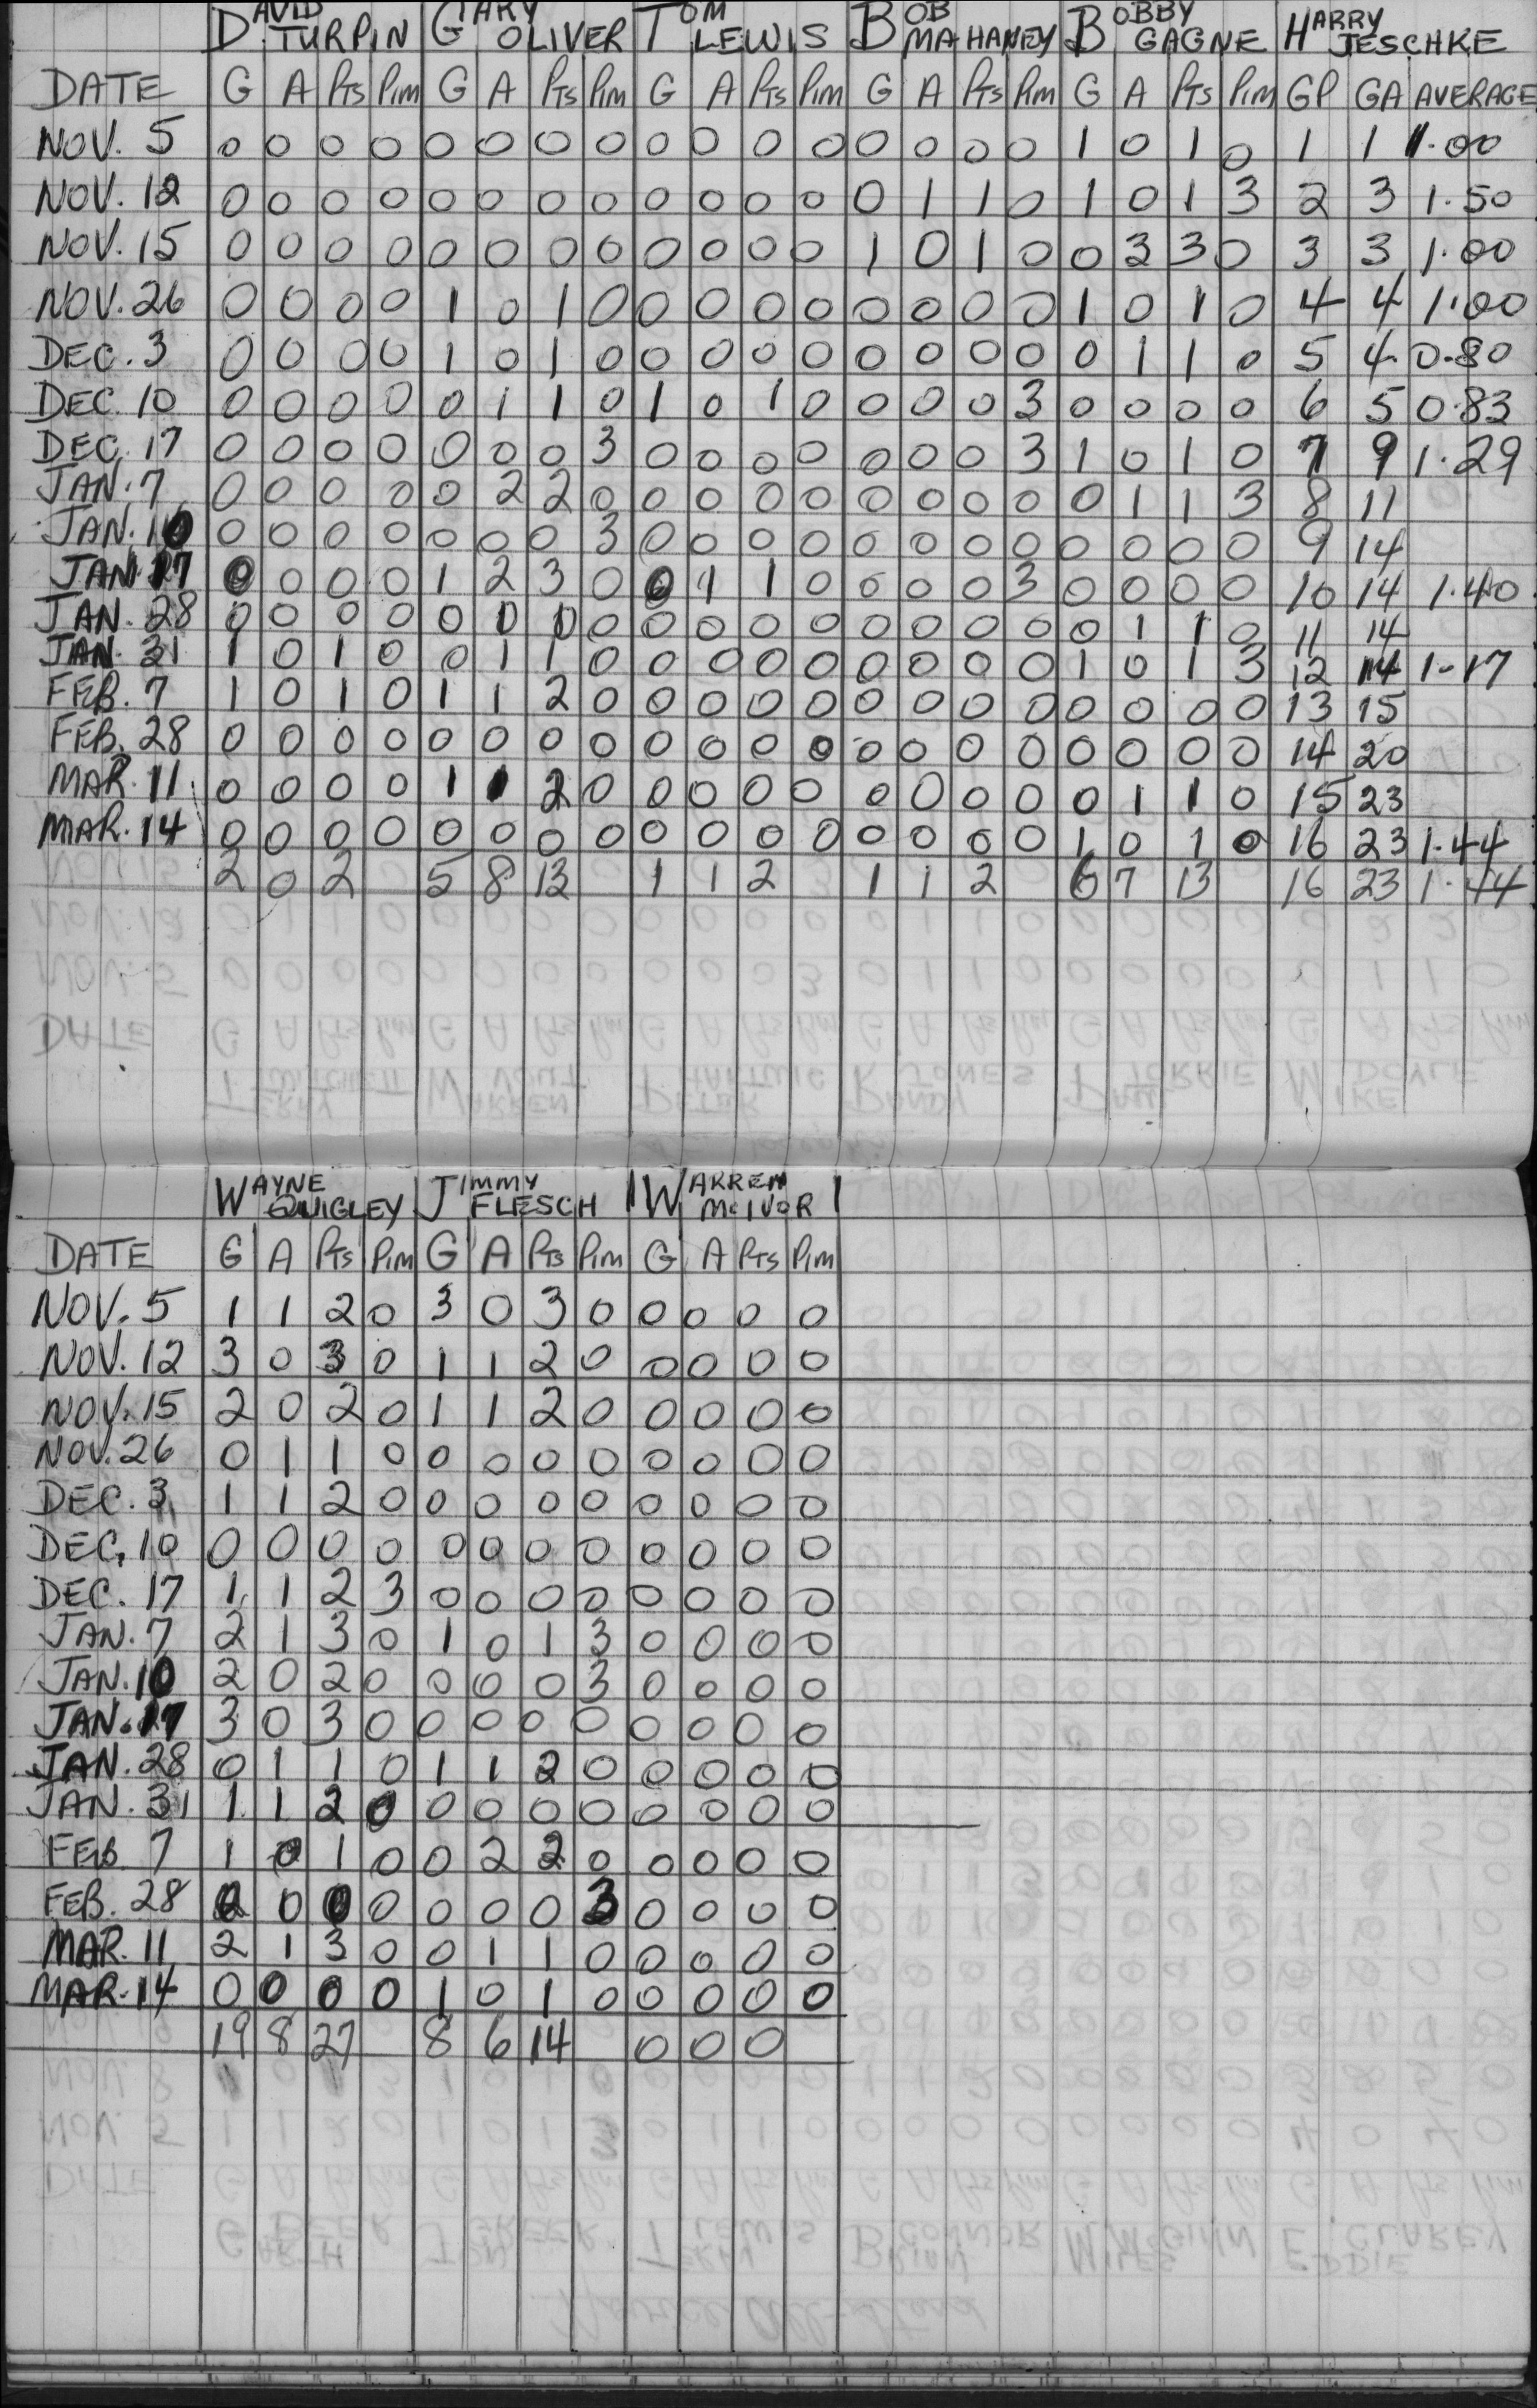 DAVID TURPIN GARY OLIVER TOM LEWIS BOB MAHANEY BOBBY GAGNE HARRY JESCHKE
DATE G A Pts Pim G A Pts Pim G A Pts Pim G A Pts Pim G A Pts Pim GP GA AVERAGE
NOV. 5 0 0 0 0 0 0 0 0 0 0 0 0 0 0 0 0 1 0 1 0 1 1 1.00
NOV. 12 0 0 0 0 0 0 0 0 0 0 0 0 0 1 1 0 1 0 1 3 2 3 1.50
NOV. 15 0 0 0 0 0 0 0 0 0 0 0 0 1 0 1 0 0 3 3 0 3 3 1.00
NOV. 26 0 0 0 0 1 0 1 0 0 0 0 0 0 0 0 0 1 0 1 0 4 4 1.00
DEC. 3 0 0 0 0 1 0 1 0 0 0 0 0 0 0 0 0 0 1 1 0 5 4 0.80
DEC. 10 0 0 0 0 0 1 1 0 1 0 1 0 0 0 0 3 0 0 0 0 6 5 0.83
DEC. 17 0 0 0 0 0 0 0 3 0 0 0 0 0 0 0 3 1 0 1 0 7 9 1.29
JAN. 7 0 0 0 0 0 2 2 0 0 0 0 0 0 0 0 0 0 1 1 3 8 11
JAN. 10 0 0 0 0 0 0 0 3 0 0 0 0 0 0 0 0 0 0 0 0 9 14
JAN 17 0 0 0 0 1 2 3 0 0 1 1 0 0 0 0 3 0 0 0 0 10 14 1.40
JAN. 28 0 0 0 0 0 0 0 0 0 0 0 0 0 0 0 0 0 1 1 0 11 14
JAN. 31 1 0 1 0 0 1 1 0 0 0 0 0 0 0 0 0 1 0 1 3 12 14 1.17
FEB. 7 1 0 1 0 1 1 2 0 0 0 0 0 0 0 0 0 0 0 0 0 13 15
FEB. 28 0 0 0 0 0 0 0 0 0 0 0 0 0 0 0 0 0 0 0 0 14 20
MAR. 11 0 0 0 0 1 1 2 0 0 0 0 0 0 0 0 0 0 1 1 0 15 23
MAR. 14 0 0 0 0 0 0 0 0 0 0 0 0 0 0 0 0 1 0 1 0 16 23 1.44
2 0 2 5 8 13 1 1 2 1 1 2 6 7 13 16 23 1.44
WAYNE QUIGLEY JIMMY FLESCH WARREN McIVOR
DATE G A Pts Pim G A Pts Pim G A Pts Pim
NOV. 5 1 1 2 0 3 0 3 0 0 0 0 0
NOV. 12 3 0 3 0 1 1 2 0 0 0 0 0
NOV. 15 2 0 2 0 1 1 2 0 0 0 0 0
NOV. 26 0 1 1 0 0 0 0 0 0 0 0 0
DEC. 3 1 1 2 0 0 0 0 0 0 0 0 0
DEC. 10 0 0 0 0 0 0 0 0 0 0 0 0
DEC. 17 1 1 2 3 0 0 0 0 0 0 0 0
JAN. 7 2 1 3 0 1 0 1 3 0 0 0 0
JAN. 10 2 0 2 0 0 0 0 3 0 0 0 0
JAN. 17 3 0 3 0 0 0 0 0 0 0 0 0
JAN. 28 0 1 1 0 1 1 2 0 0 0 0 0
JAN. 31 1 1 2 0 0 0 0 0 0 0 0 0
FEB. 7 1 0 1 0 0 2 2 0 0 0 0 0
FEB. 28 0 0 0 0 0 0 0 3 0 0 0 0
MAR. 11 2 1 3 0 0 1 1 0 0 0 0 0
MAR. 14 0 0 0 0 1 0 1 0 0 0 0 0
19 8 27 8 6 14 0 0 0